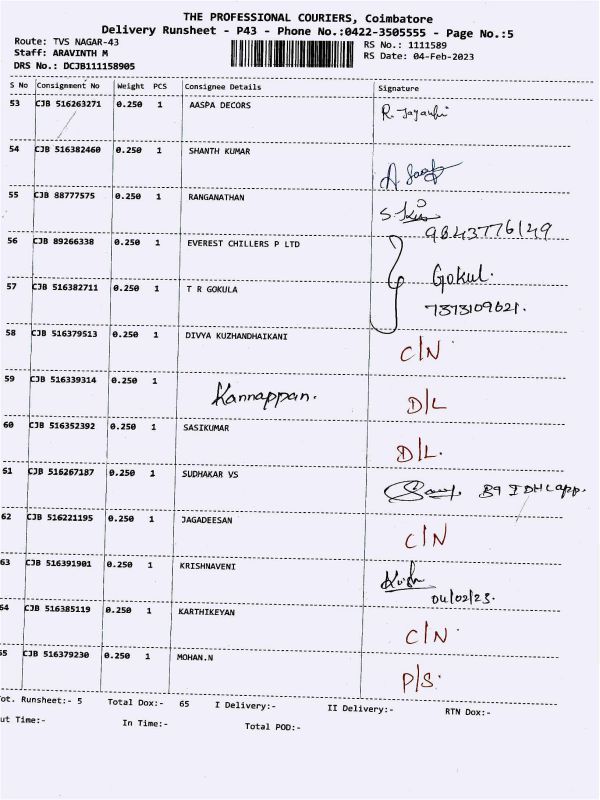 THE PROFESSIONAL COURIERS, Coimbatore
Delivery Runsheet - P43 - Phone No.:0422-3505555 - Page No.:5
Route: TVS NAGAR-43
RS No.: 1111589
Staff: ARAVINTH M
RS Date: 04-Feb-2023
DRS No.: DCJB111158905
S No Consignment No Weight PCS Consignee Details Signature
53 CJB 516263271 0.250 1 AASPA DECORS R. Jayanthi
54 CJB 516382460 0.250 1 SHANTH KUMAR
55 CJB 88777575 0.250 1 RANGANATHAN
9843776149
56 CJB 89266338 0.250 1 EVEREST CHILLERS P LTD
Gokul.
57 CJB 516382711 0.250 1 T R GOKULA
7373109621.
58 CJB 516379513 0.250 1 DIVYA KUZHANDHAIKANI C/N
59 CJB 516339314 0.250 1 Kannappan. D/L
60 CJB 516352392 0.250 1 SASIKUMAR D/L.
61 CJB 516267187 0.250 1 SUDHAKAR VS
62 CJB 516221195 0.250 1 JAGADEESAN C/N
63 CJB 516391901 0.250 1 KRISHNAVENI
04/02/23.
64 CJB 516385119 0.250 1 KARTHIKEYAN C/N
55 CJB 516379230 0.250 1 MOHAN.N P/S.
ot. Runsheet:- 5 Total Dox:- 65 I Delivery:- II Delivery:- RTN Dox:-
ut Time:- In Time:- Total POD:-